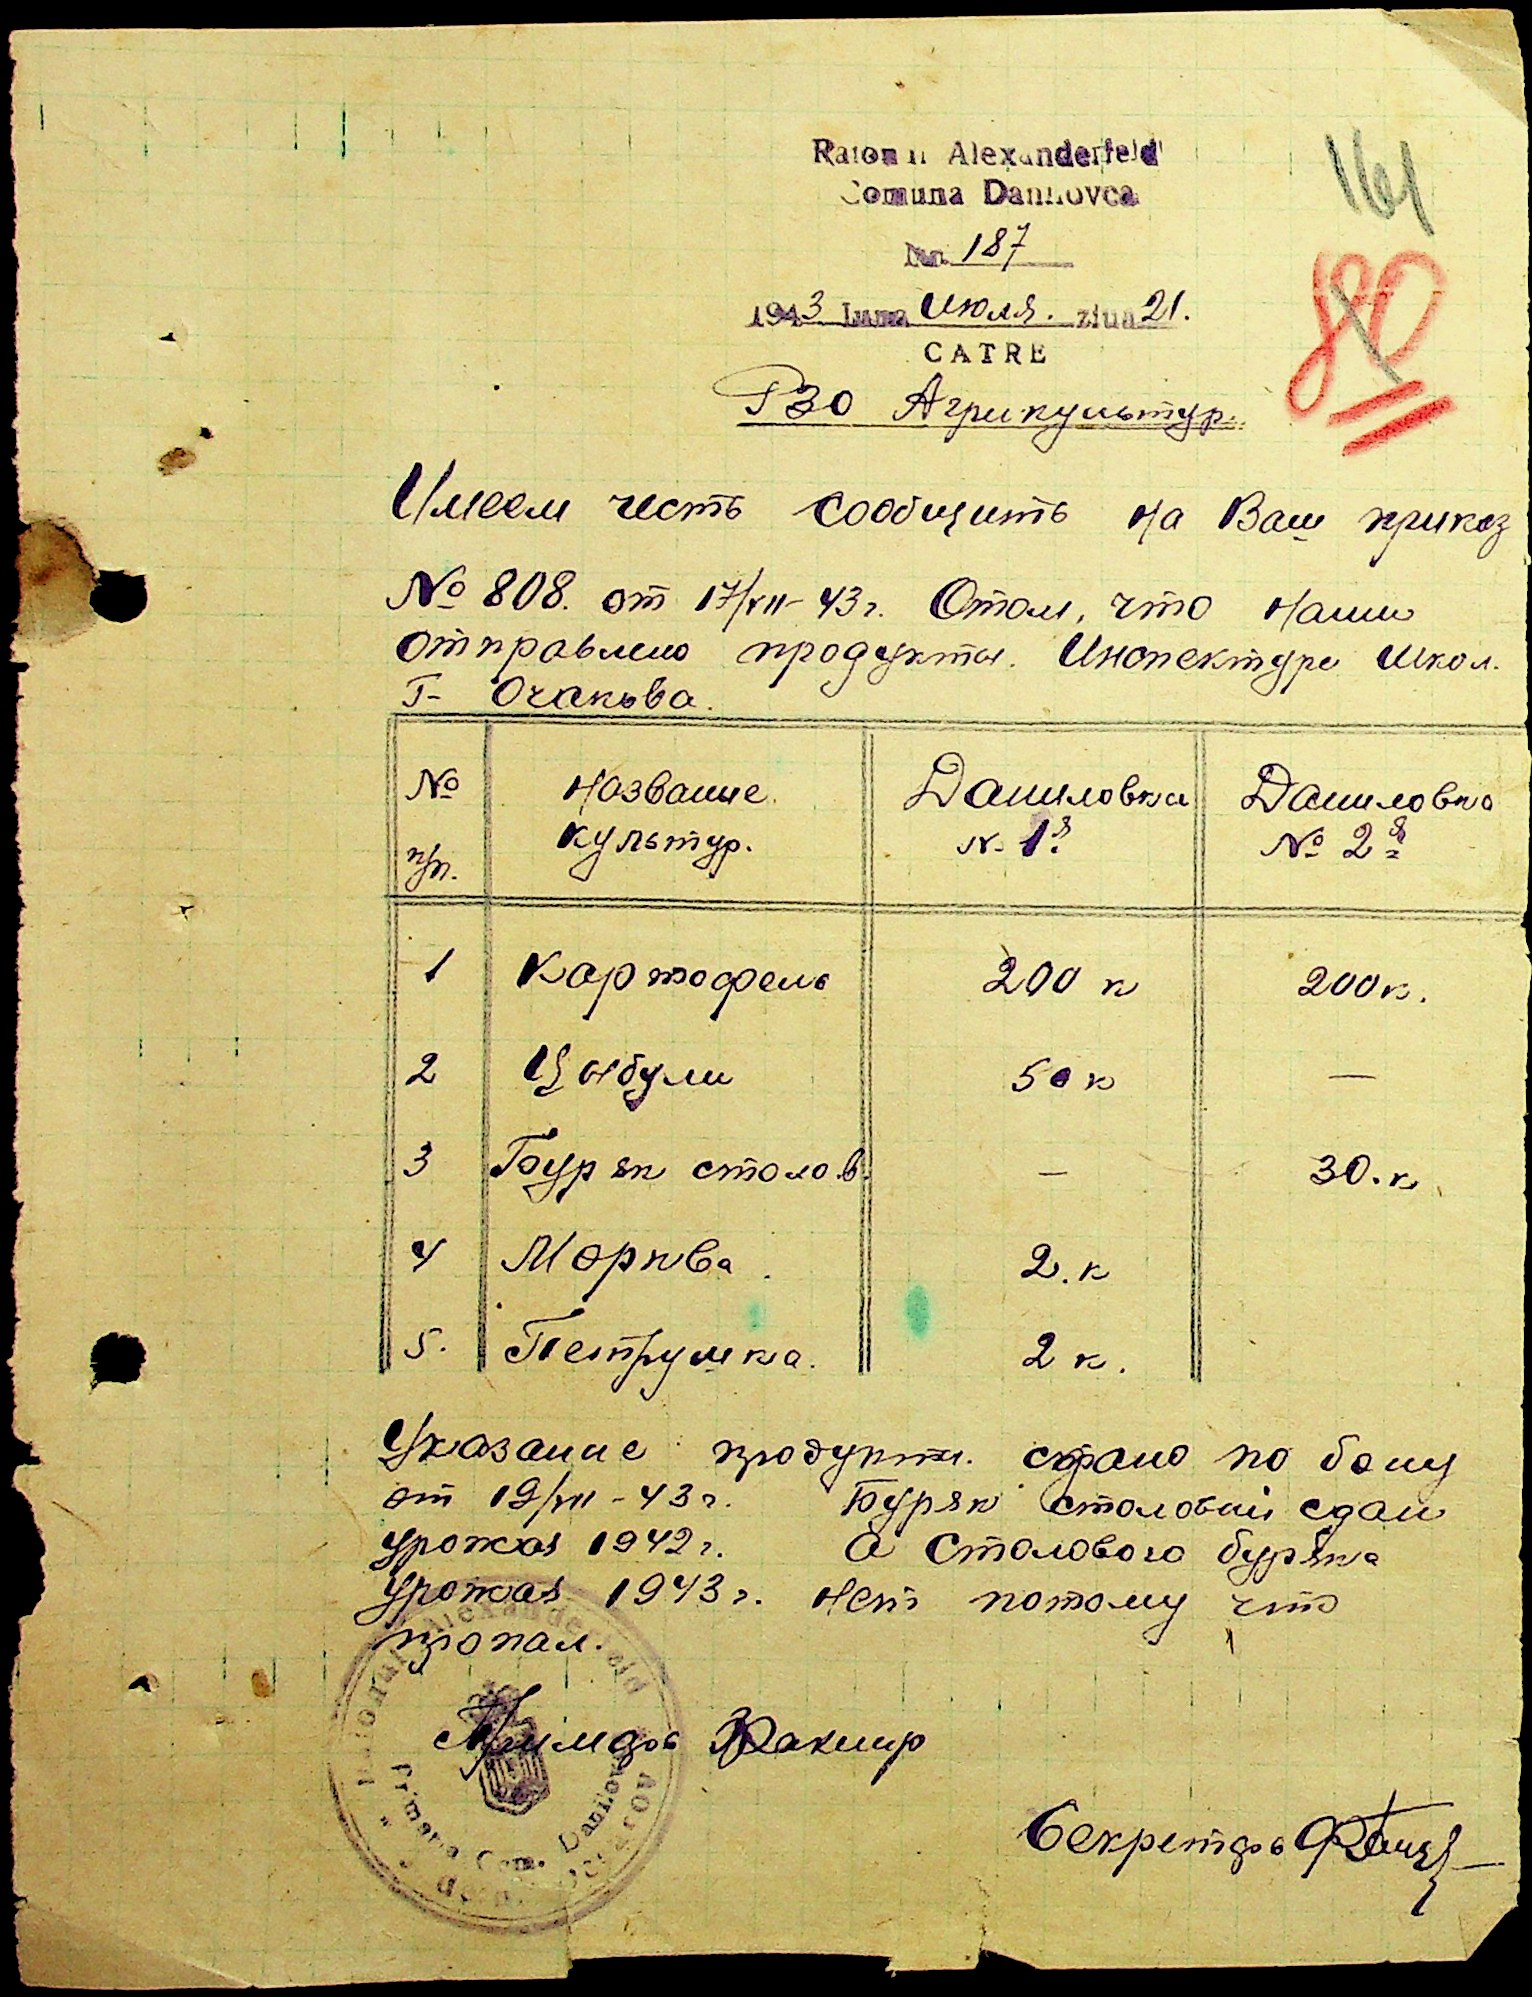 Raionul Alexanderfeld
Comuna Danilovca
161
No. 187
80
1943 Luna Июля. ziua 21.
CATRE
РЗО Агрикультур.
Имеем честь сообщить на Ваш приказ
№ 808. от 17/VII-43г. Отом, что нами
отправлено продукты. Инспектуре Школ.
Г- Очакова.
№ п/п. Название культур. Даниловка №. 1я Даниловка № 2я
1 Картофель 200 к 200 к.
2 Цыбули 50 к —
3 Буряк столов. — 30. к
4 Морква. 2. к
5. Петрушка. 2 к.
Указание продукты. сдано по бону
от 19/VII-43г. Буряк столовий сдали
урожая 1942г. А Столового буряка
урожая 1943г. Нет потому что
пропал.
Примарь
Секретарь
Raionul Alexanderfeld
Primaria Com. Danilovca
Oceacov